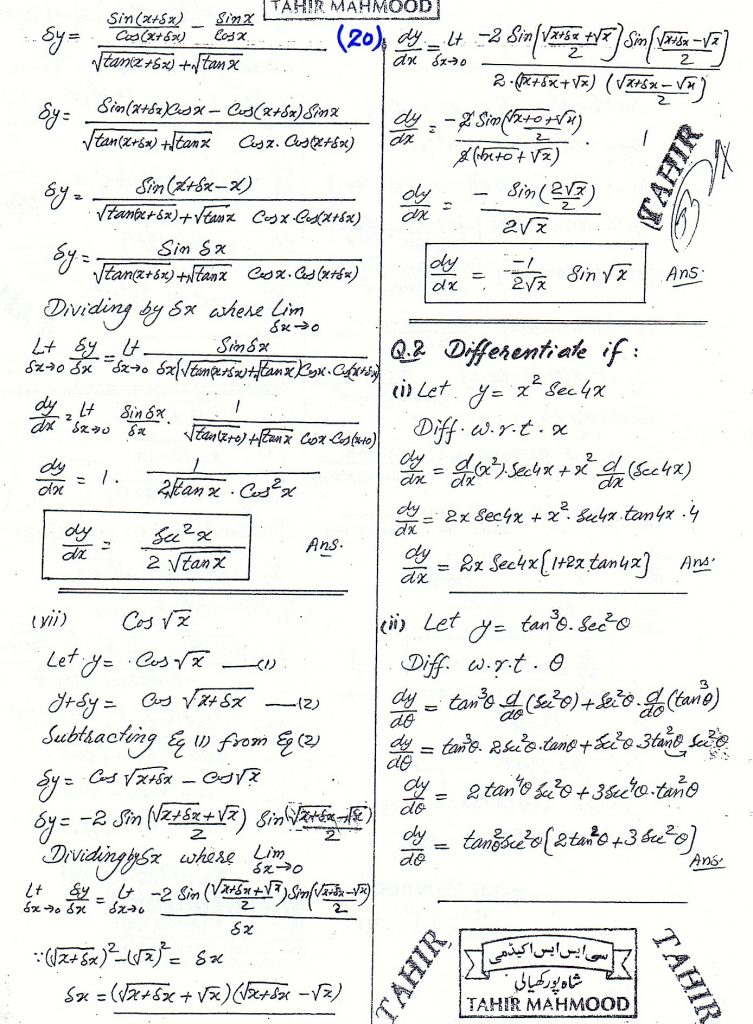 TAHIR MAHMOOD
(20)
δy = (Sin(x+δx)/Cos(x+δx) − Sinx/Cosx) / (√tan(x+δx) + √tanx)
δy = (Sin(x+δx)Cosx − Cos(x+δx)Sinx) / (√tan(x+δx) + √tanx Cosx.Cos(x+δx))
δy = Sin(x+δx−x) / (√tan(x+δx) + √tanx Cosx.Cos(x+δx))
δy = Sin δx / (√tan(x+δx) + √tanx Cosx.Cos(x+δx))
Dividing by δx where Lim δx→0
Lt δx→0 δy/δx = Lt δx→0 Sinδx / δx(√tan(x+δx) + √tanx)Cosx.Cos(x+δx)
dy/dx = Lt δx→0 Sinδx/δx . 1 / (√tan(x+0) + √tanx Cosx.Cos(x+0))
dy/dx = 1 . 1 / (2√tanx . Cos²x)
dy/dx = Sec²x / (2√tanx) Ans.
(vii) Cos√x
Let y = Cos√x —(1)
y+δy = Cos√x+δx —(2)
Subtracting Eq (1) from Eq (2)
δy = Cos√x+δx − Cos√x
δy = −2 Sin((√x+δx + √x)/2) Sin((√x+δx − √x)/2)
Dividing by δx where Lim δx→0
Lt δx→0 δy/δx = Lt δx→0 −2 Sin((√x+δx + √x)/2) Sin((√x+δx − √x)/2) / δx
∵ (√x+δx)² − (√x)² = δx
δx = (√x+δx + √x)(√x+δx − √x)
dy/dx = Lt δx→0 −2 Sin((√x+δx + √x)/2) Sin((√x+δx − √x)/2) / 2.(√x+δx + √x) ((√x+δx − √x)/2)
dy/dx = −2 Sin((√x+0 + √x)/2) / 2(√x+0 + √x) . 1
TAHIR
dy/dx = − Sin(2√x/2) / 2√x
dy/dx = −1/(2√x) Sin√x Ans.
Q.2 Differentiate if :
(i) Let y = x² Sec4x
Diff. w.r.t. x
dy/dx = d/dx(x²).Sec4x + x² d/dx(Sec4x)
dy/dx = 2x Sec4x + x². Sec4x.tan4x.4
dy/dx = 2x Sec4x[1+2x tan4x] Ans.
(ii) Let y = tan³θ.Sec²θ
Diff. w.r.t. θ
dy/dθ = tan³θ d/dθ(Sec²θ) + Sec²θ.d/dθ(tan³θ)
dy/dθ = tan³θ.2Sec²θ.tanθ + Sec²θ.3tan²θ Sec²θ
dy/dθ = 2tan⁴θ Sec²θ + 3Sec⁴θ.tan²θ
dy/dθ = tan²θSec²θ[2tan²θ + 3Sec²θ] Ans.
TAHIR
سی ایس ایس اکیڈمی
شاہ پور کھیالی
TAHIR MAHMOOD
TAHIR